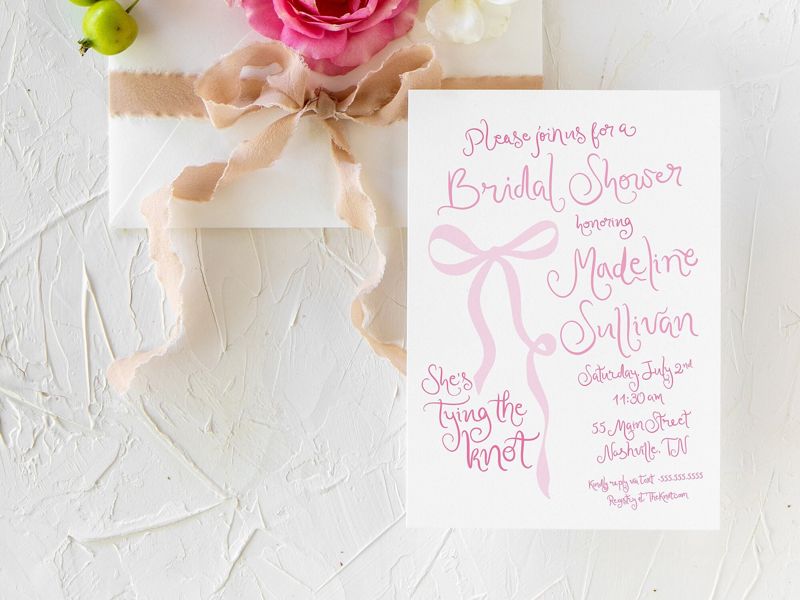 Please join us for a
Bridal Shower
honoring
Madeline
Sullivan
She's
tying the
knot
Saturday, July 2nd
11:30 am
55 Main Street
Nashville, TN
Kindly reply via text -555.555.5555
Registry at TheKnot.com